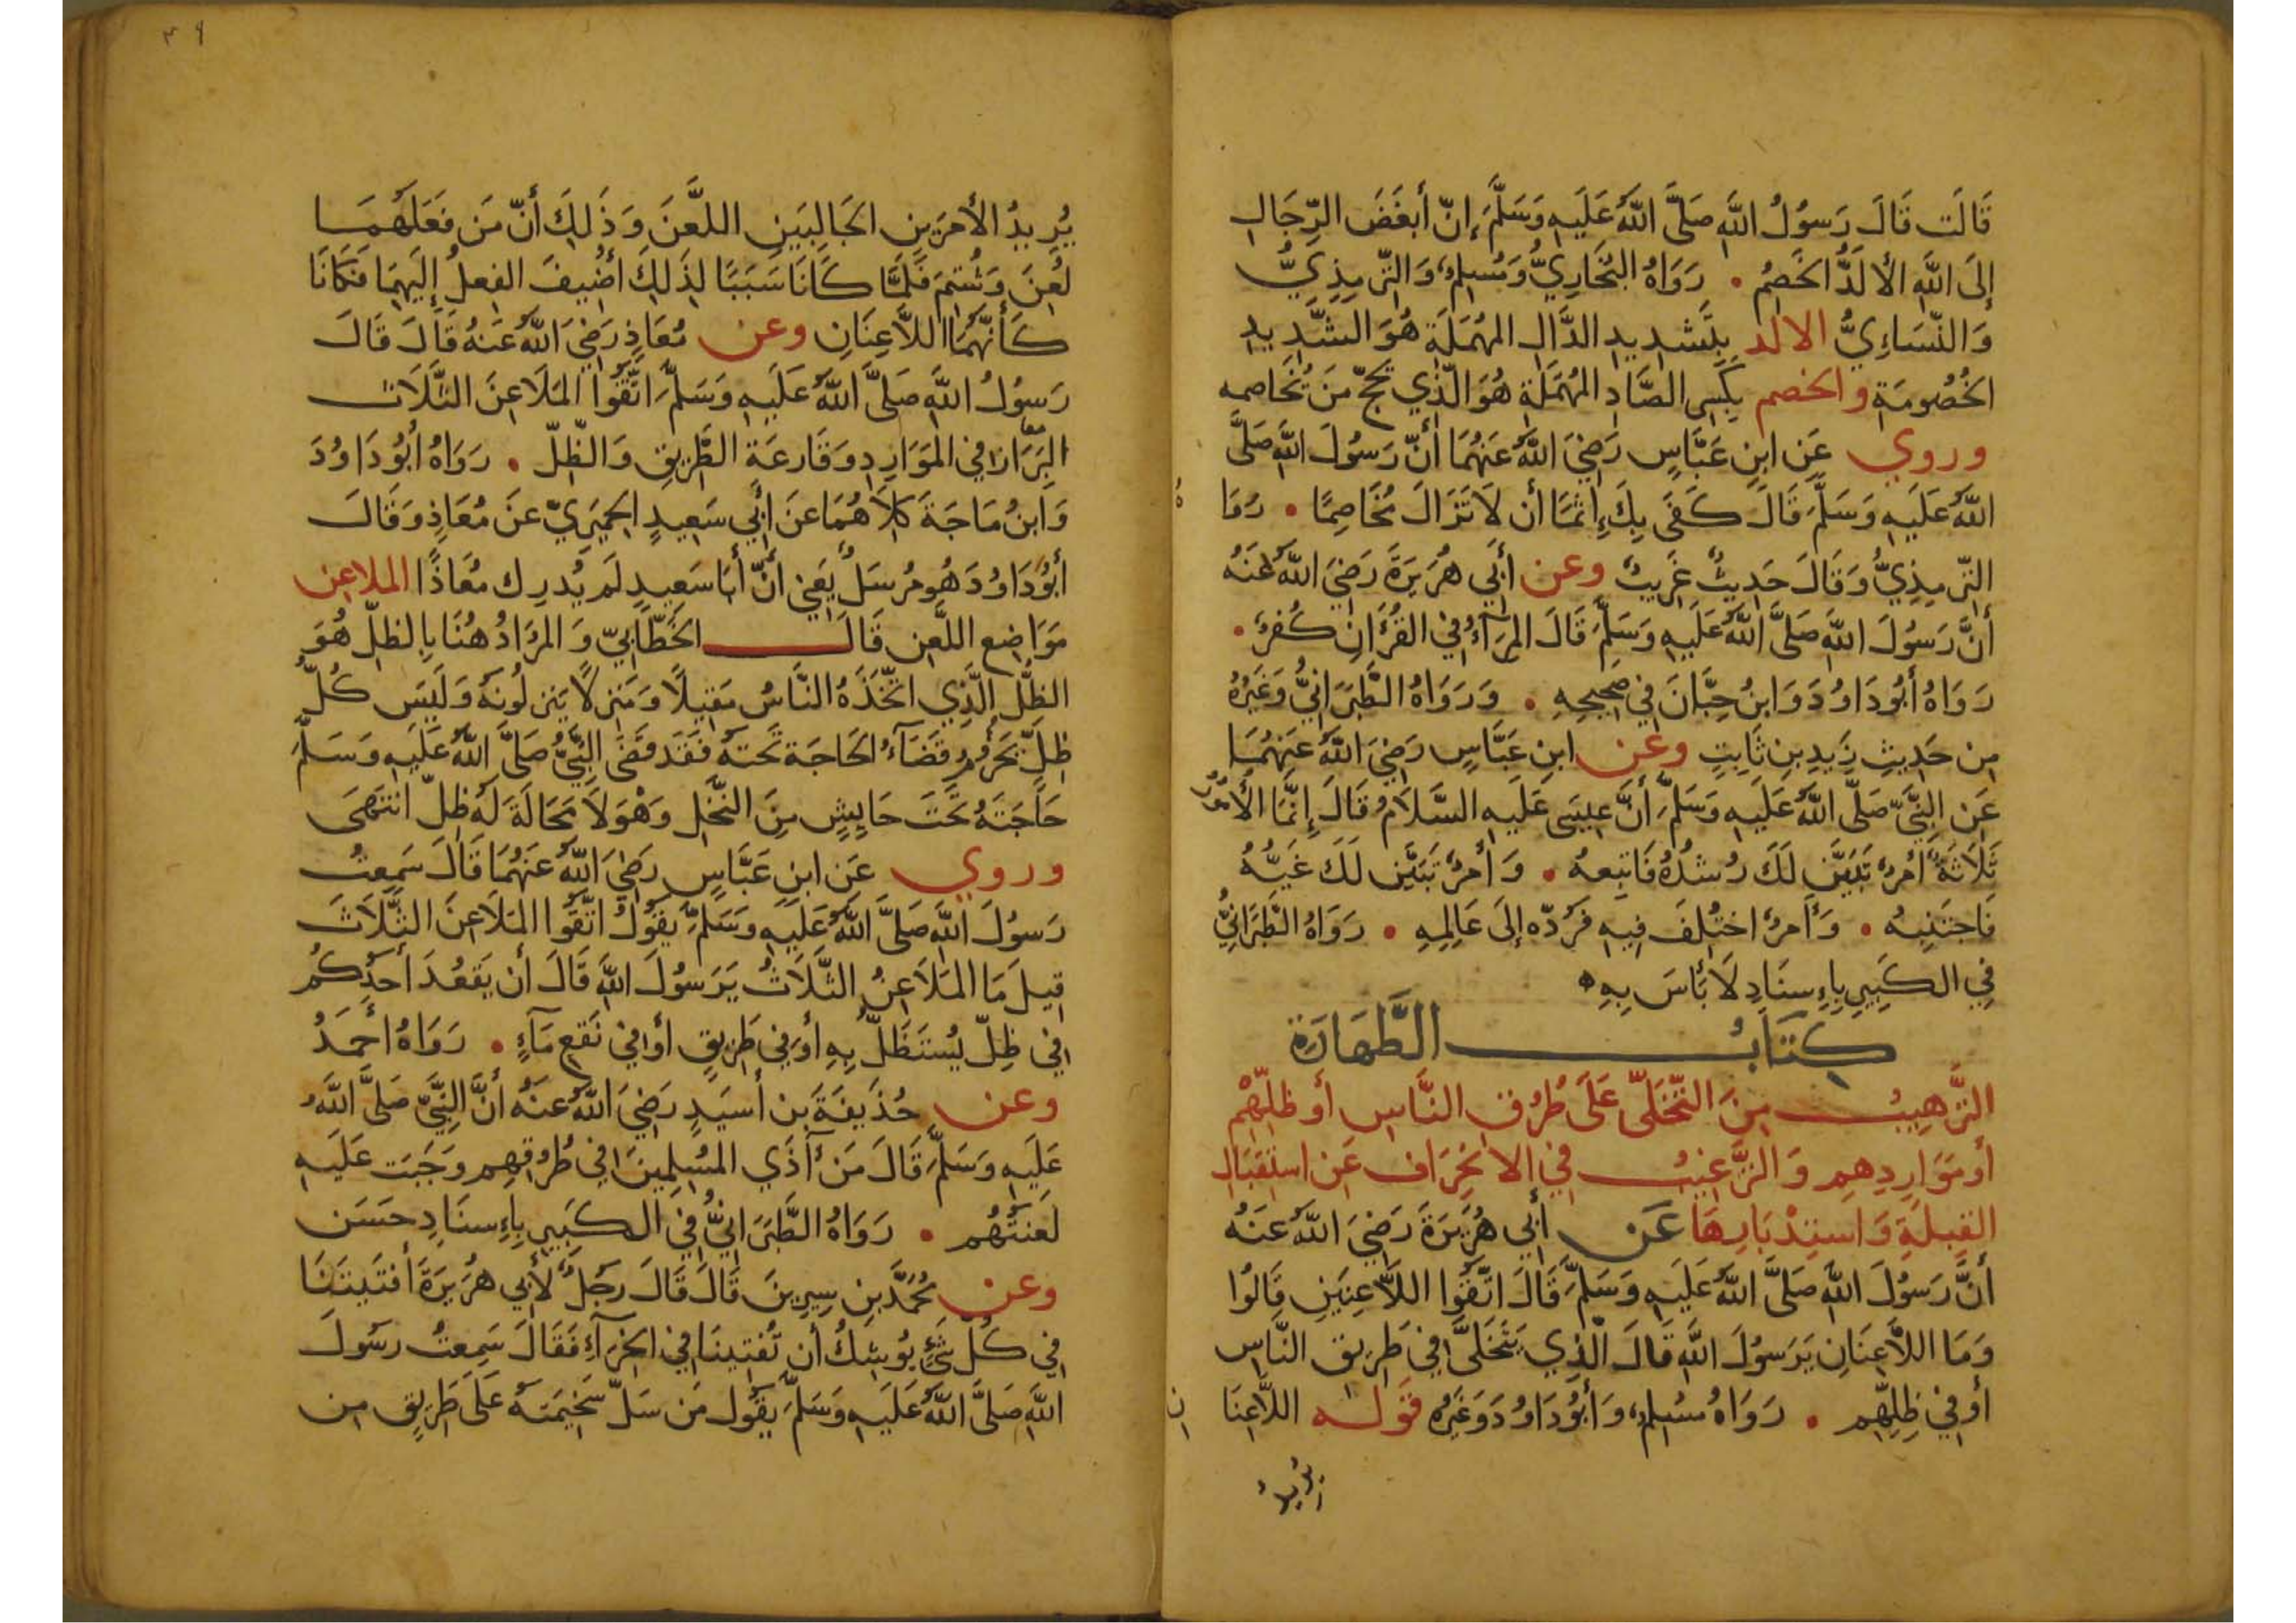 قَالَت قَالَ رَسُولُ اللَّهِ صَلَّى اللَّهُ عَلَيهِ وَسَلَّمَ إِنّ أَبغَضَ الرِّجَالِ
إِلَى اللَّهِ الأَلَدُّ الخَصِمُ . رَوَاهُ البُخَارِيُّ وَمُسلِمٌ وَالتِّرمِذِيُّ
وَالنَّسَاءِيُّ الالد بِتَشدِيدِ الدَّالِ المُهمَلَةِ هُوَ الشَّدِيدِ
الخُصُومَةِ والخصم بِكَسرِ الصَّادِ المُهمَلَةِ هُوَ الّذِي يَحُجّ مَن يُخَاصمه
وروي عَن ابنِ عَبَّاسٍ رَضِيَ اللَّهُ عَنهُمَا أَنّ رَسُولَ اللَّهِ صَلَّى
اللَّهُ عَلَيهِ وَسَلَّمَ قَالَ كَفَى بِكَ إِثمًا أَن لَا تَزَالَ مُخَاصِمًا . رَوَا هُ
التِّرمِذِيُّ وَقَالَ حَدِيثٌ غَرِيبٌ وعن أَبِي هُرَيرَةَ رَضِيَ اللَّهُ عَنهُ
أَنَّ رَسُولَ اللَّهِ صَلَّى اللَّهُ عَلَيهِ وَسَلَّمَ قَالَ المِرَآءُ فِي القُرءَانِ كُفرٌ .
رَوَاهُ أَبُو دَاوُدَ وَابنُ حِبَّانَ فِي صَحِيحِهِ . وَرَوَاهُ الطَّبَرَانِيُّ وَغَيرُهُ
مِن حَدِيثِ زَيدِ بنِ ثَابِتٍ وعَن ابنِ عَبَّاسٍ رَضِيَ اللَّهُ عَنهُمَا
عَنِ النَّبِيِّ صَلَّى اللَّهُ عَلَيهِ وَسَلَّمَ أَنَّ عِيسَى عَلَيهِ السَّلَامُ قَالَ إِنَّمَا الأُمُورُ
ثَلَاثَةٌ أَمرٌ تَبَيَّنَ لَكَ رُشدُهُ فَاتبِعهُ . وَأَمرٌ تَبَيَّنَ لَكَ غَيُّهُ
فَاجتَنِبهُ . وَأَمرٌ اختُلِفَ فِيهِ فَرُدّه إِلَى عَالِمِهِ . رَوَاهُ الطَّبَرَانِيُّ
فِي الكَبِيرِ بِإِسنَادٍ لَا بَأسَ بِهِ
كِتَابُ الطَّهَارَةِ
التَّرهِيبُ مِنَ التَّخَلِّي عَلَى طُرُقِ النَّاسِ أَو ظِلِّهِمْ
أَو مَوَارِدِهِم وَالتَّرغِيبُ فِي الانحِرَافِ عَن استِقبَالِ
القِبلَةِ وَاستِدْبَارِهَا عَن أَبِي هُرَيرَةَ رَضِيَ اللَّهُ عَنهُ
أَنَّ رَسُولَ اللَّهِ صَلَّى اللَّهُ عَلَيهِ وَسَلَّمَ قَالَ اتَّقُوا اللَّاعِنَينِ قَالُوا
وَمَا اللَّاعِنَانِ يَرَسُولَ اللَّهِ قَالَ الّذِي يَتَخَلَّى فِي طَرِيقِ النَّاسِ
أَو فِي ظِلِّهِم . رَوَاهُ مُسلِمٌ وَأَبُو دَاوُدَ وَغَيرُه قَوله اللَّاعِنَا نِ
يُرِيدُ
٣٩
يُرِيدُ الأَمرَينِ الجَالِبَينِ اللَّعنَ وَذَلِكَ أَنّ مَن فَعَلَهُمَا
لُعِنَ وَشُتِمَ فَلَمَّا كَانَا سَبَبًا لِذَلِكَ أُضِيفَ الفِعلُ إِلَيهِمَا فَكَانَا
كَأَنَّهُمَا اللَّاعِنَانِ وعن مُعَاذٍ رَضِيَ اللَّهُ عَنهُ قَالَ قَالَ
رَسُولُ اللَّهِ صَلَّى اللَّهُ عَلَيهِ وَسَلَّمَ اتَّقُوا المَلَاعِنَ الثَّلَاثَ
البَرَازَ فِي المَوَارِدِ وَقَارِعَةِ الطَّرِيقِ وَالظِّلّ . رَوَاهُ أَبُو دَاوُدَ
وَابنُ مَاجَةَ كِلَاهُمَا عَن أَبِي سَعِيدٍ الحِميَرِيّ عَن مُعَاذٍ وَقَالَ
أَبُو دَاوُدَ هُو مُرسَلٌ يَعنِي أَنّ أَبَا سَعِيدٍ لَم يُدرِك مُعَاذًا الملاعن
مَوَاضِع اللَّعنِ قَالَ الخَطّابِيّ وَالمرَادُ هُنَا بِالظِلّ هُوَ
الظِّلُّ الّذِي اتّخَذَهُ النَّاسُ مَقِيلًا وَمَنزِلًا يَنزِلُونهُ وَلَيسَ كُلُّ
ظِلٍّ يَحرُمُ قَضَآءُ الحَاجَةِ تَحتَهُ فَقَد قَضَى النَّبِيُّ صَلَّى اللَّهُ عَلَيهِ وَسَلَّمَ
حَاجَتَهُ تَحتَ حَايِشٍ مِنَ النَّخلِ وَهْوَ لَا مَحَالَةَ لَهُ ظِلّ انتَهَى
وروي عَن ابنِ عَبَّاسٍ رَضِيَ اللَّهُ عَنهُمَا قَالَ سَمِعتُ
رَسُولَ اللَّهِ صَلَّى اللَّهُ عَلَيهِ وَسَلَّمَ يَقُولُ اتَّقُوا المَلَاعِنَ الثَّلَاثَ
قِيلَ مَا المَلَاعِنُ الثَّلَاثُ يَرَسُولَ اللَّهِ قَالَ أَن يَقعُدَ أَحَدُكُم
فِي ظِلّ يُستَظَلُّ بِهِ أَو فِي طَرِيقٍ أَو فِي نَقعِ مَآءٍ . رَوَاهُ أَحمَدُ
وعن حُذَيفَةَ بنِ أَسِيَدٍ رَضِيَ اللَّهُ عَنهُ أَنَّ النَّبِيَّ صَلَّى اللَّهُ
عَلَيهِ وَسَلَّمَ قَالَ مَن آذَي المُسلِمِينَ فِي طُرُقِهِم وَجَبَت عَلَيهِ
لَعنَتُهُم . رَوَاهُ الطَّبَرَانِيُّ فِي الكَبِيرِ بِإِسنَادٍ حَسَن
وعن مُحَمَّدِ بنِ سِيرِينَ قَالَ قَالَ رَجُلٌ لِأَبِي هُرَيرَةَ أَفتَيتَنَا
فِي كُلّ شَيٍْ يُوشِكُ أَن تُفتِينَا فِي الخِرَآءِ فَقَالَ سَمِعتُ رسُولَ
اللَّهِ صَلَّى اللَّهُ عَلَيهِ وَسَلَّمَ يَقُول مَن سَلّ سَخِيمَتَهُ عَلَى طَرِيقٍ مِن